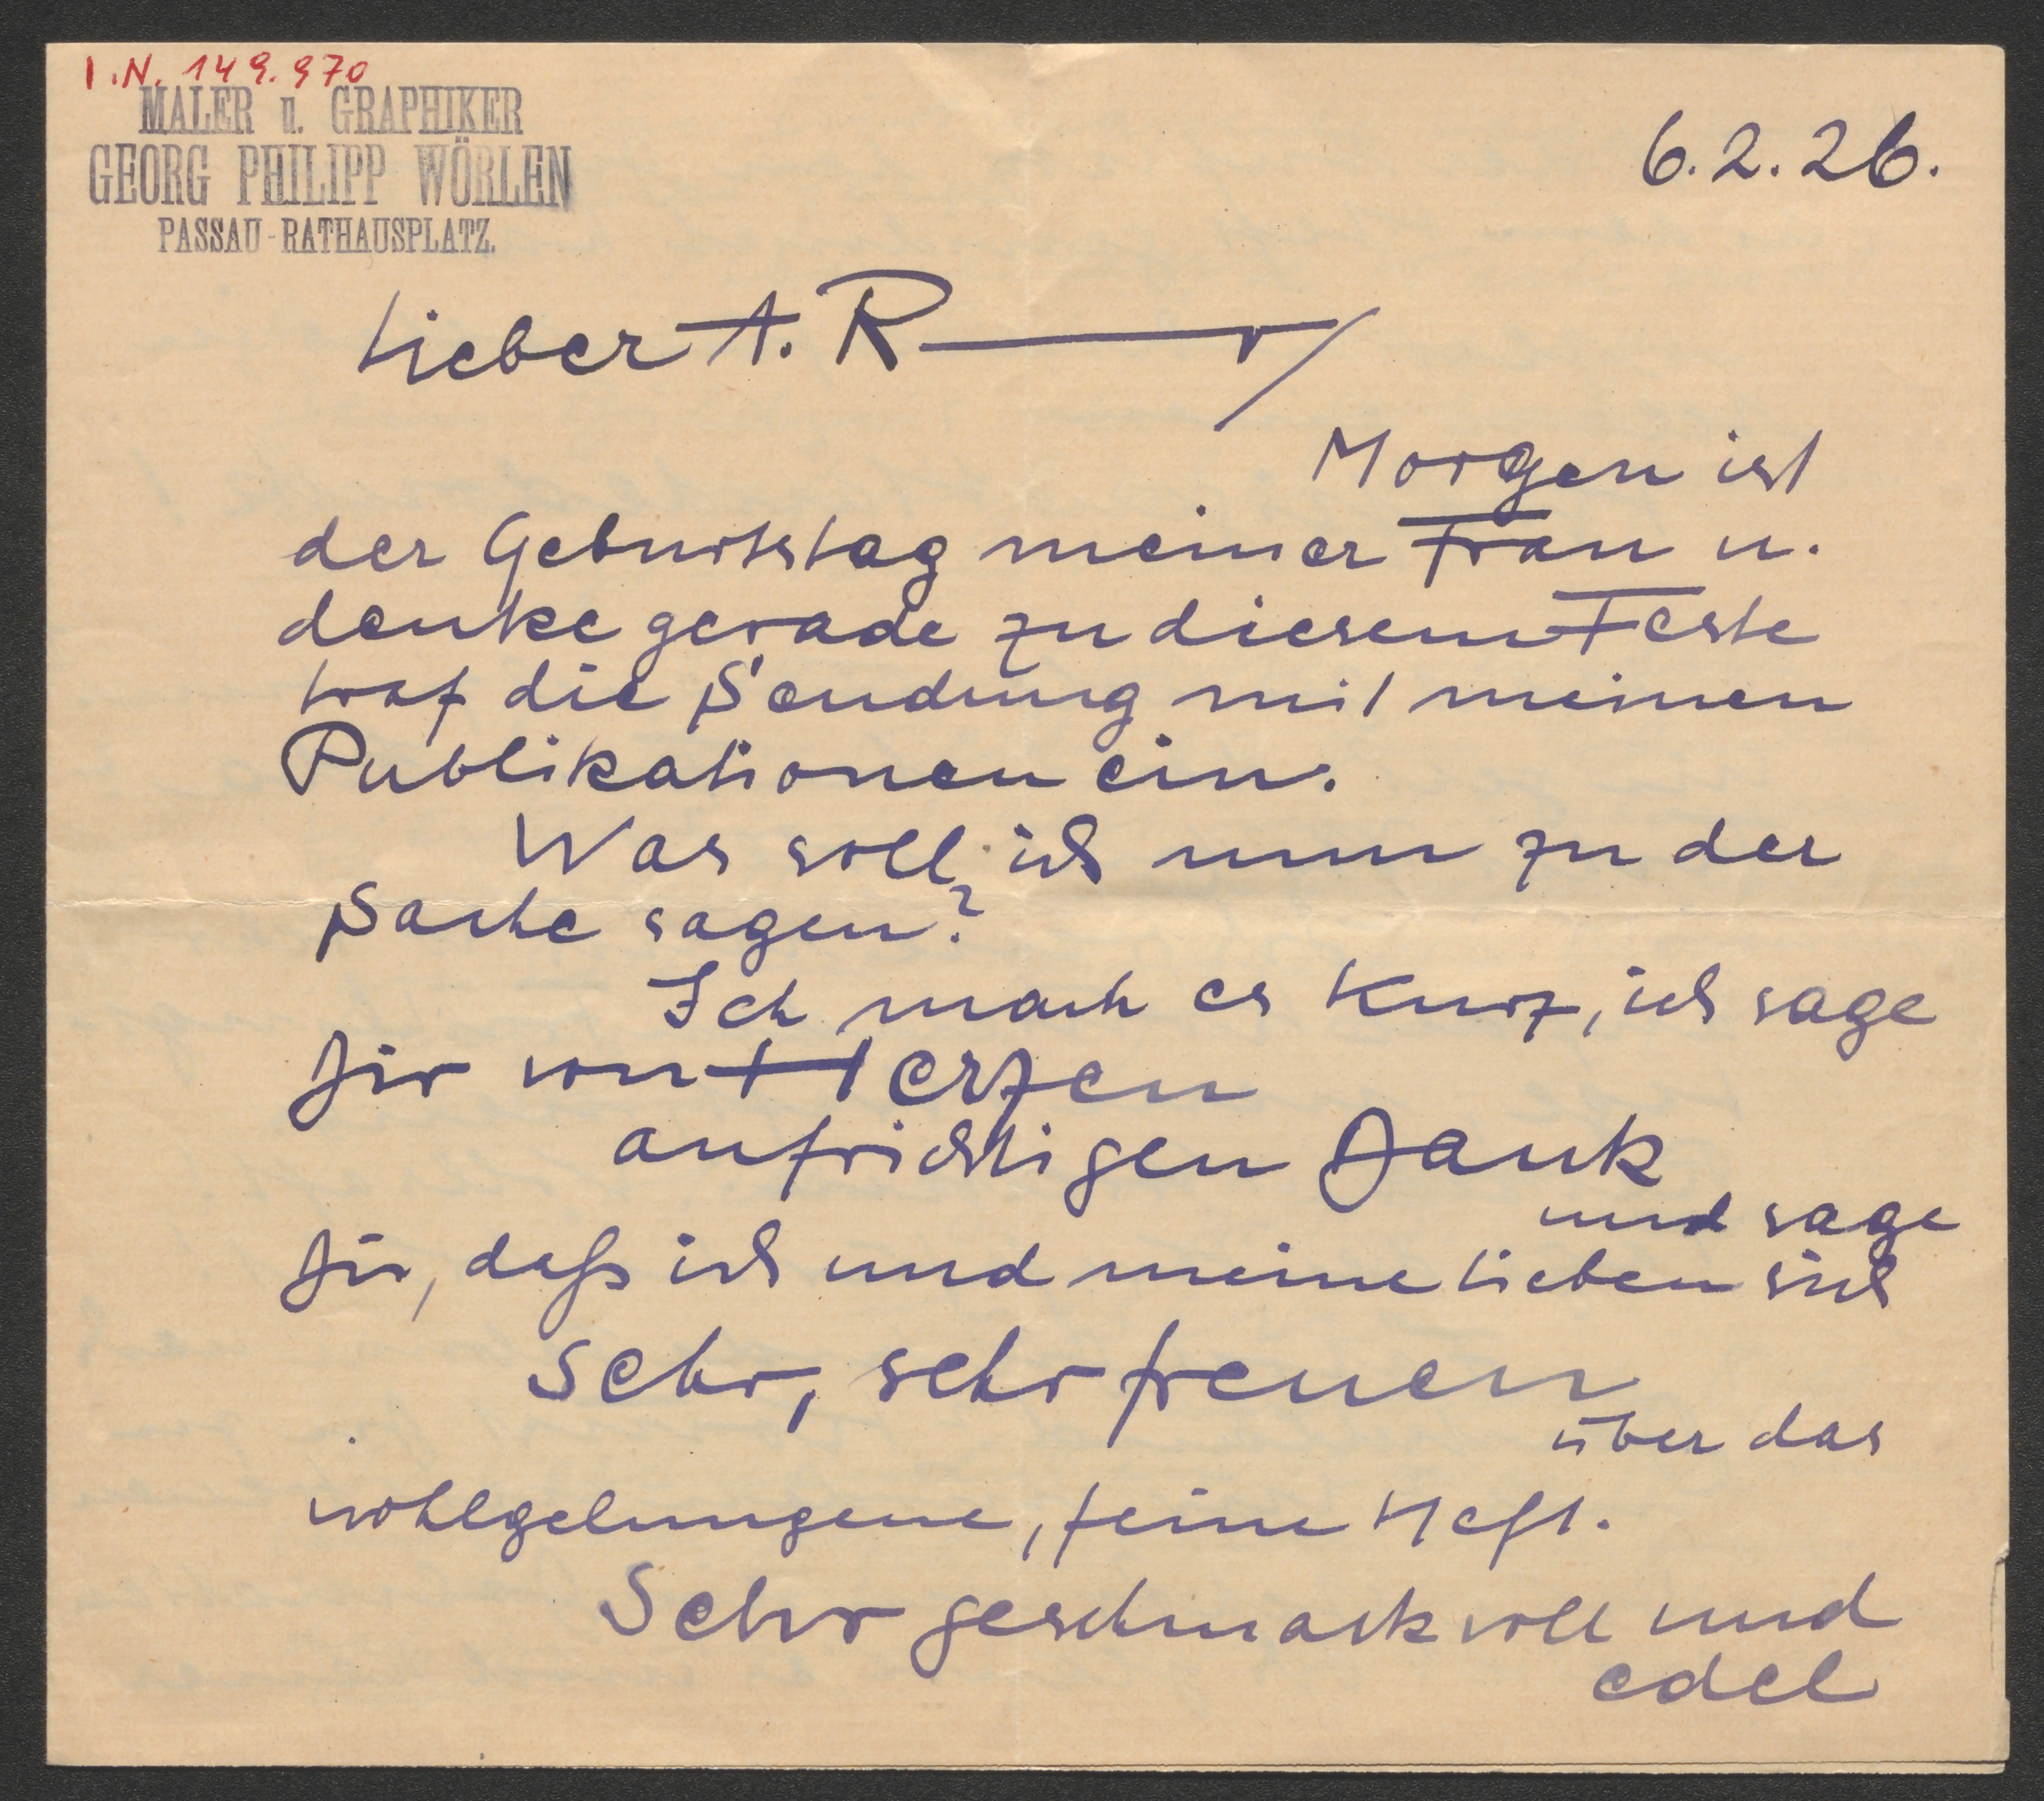 I.N. 149.970
MALER u. GRAPHIKER
GEORG PHILIPP WÖRLEN
PASSAU-RATHAUSPLATZ.
6.2.26.
Lieber A. R——r/
Morgen ist
der Geburtstag meiner Frau u.
denke gerade zu diesem Feste
traf die Sendung mit meinen
Publikationen ein.
Was soll ich nun zu der
Sache sagen?
Ich mach es kurz, ich sage
Dir von Herzen
aufrichtigen Dank
und sage
Dir, daß ich und meine Lieben sich
sehr, sehr freuen
über das
wohlgelungene, feine Heft.
Sehr geschmackvoll und
edel